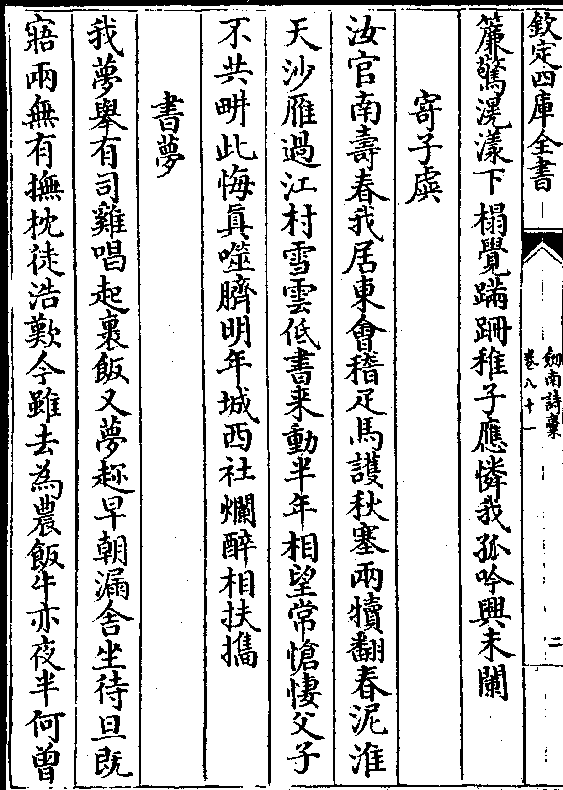 欽定四庫全書
劍南詩稾
卷八十一
二
簾驚滉漾下榻覺蹣跚稚子應憐我孤吟興未闌
寄子虡
汝官南壽春我居東會稽疋馬護秋塞兩犢翻春泥淮
天沙雁過江村雪雲低書来動半年相望常愴悽父子
不共畊此悔真噬臍明年城西社爛醉相扶攜
書夢
我夢舉有司雞唱起裹飯又夢趂早朝漏舍坐待旦既
寤兩無有撫枕徒浩歎今雖去為農飯牛亦夜半何曾